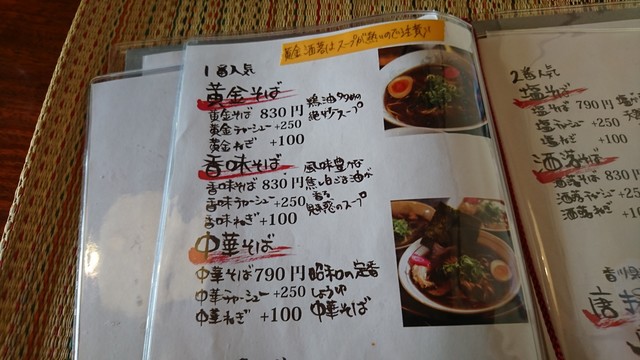 黄金 酒蕎はスープが熱いので注意!!
1番人気
黄金そば
黄金そば 830円
黄金チャーシュー +250
黄金ねぎ +100
鶏油多めの
絶妙スープ
香味そば
香味そば 830円
香味チャーシュー +250
香味ねぎ +100
風味豊かな
焦しねぎ油が
香る
魅惑のスープ
中華そば
中華そば 790円
中華チャーシュー +250
中華ねぎ +100
昭和の定番
しょうゆ
中華そば
2番人気
塩そば
塩そば 790円
塩チャーシュー +250
塩ねぎ +100